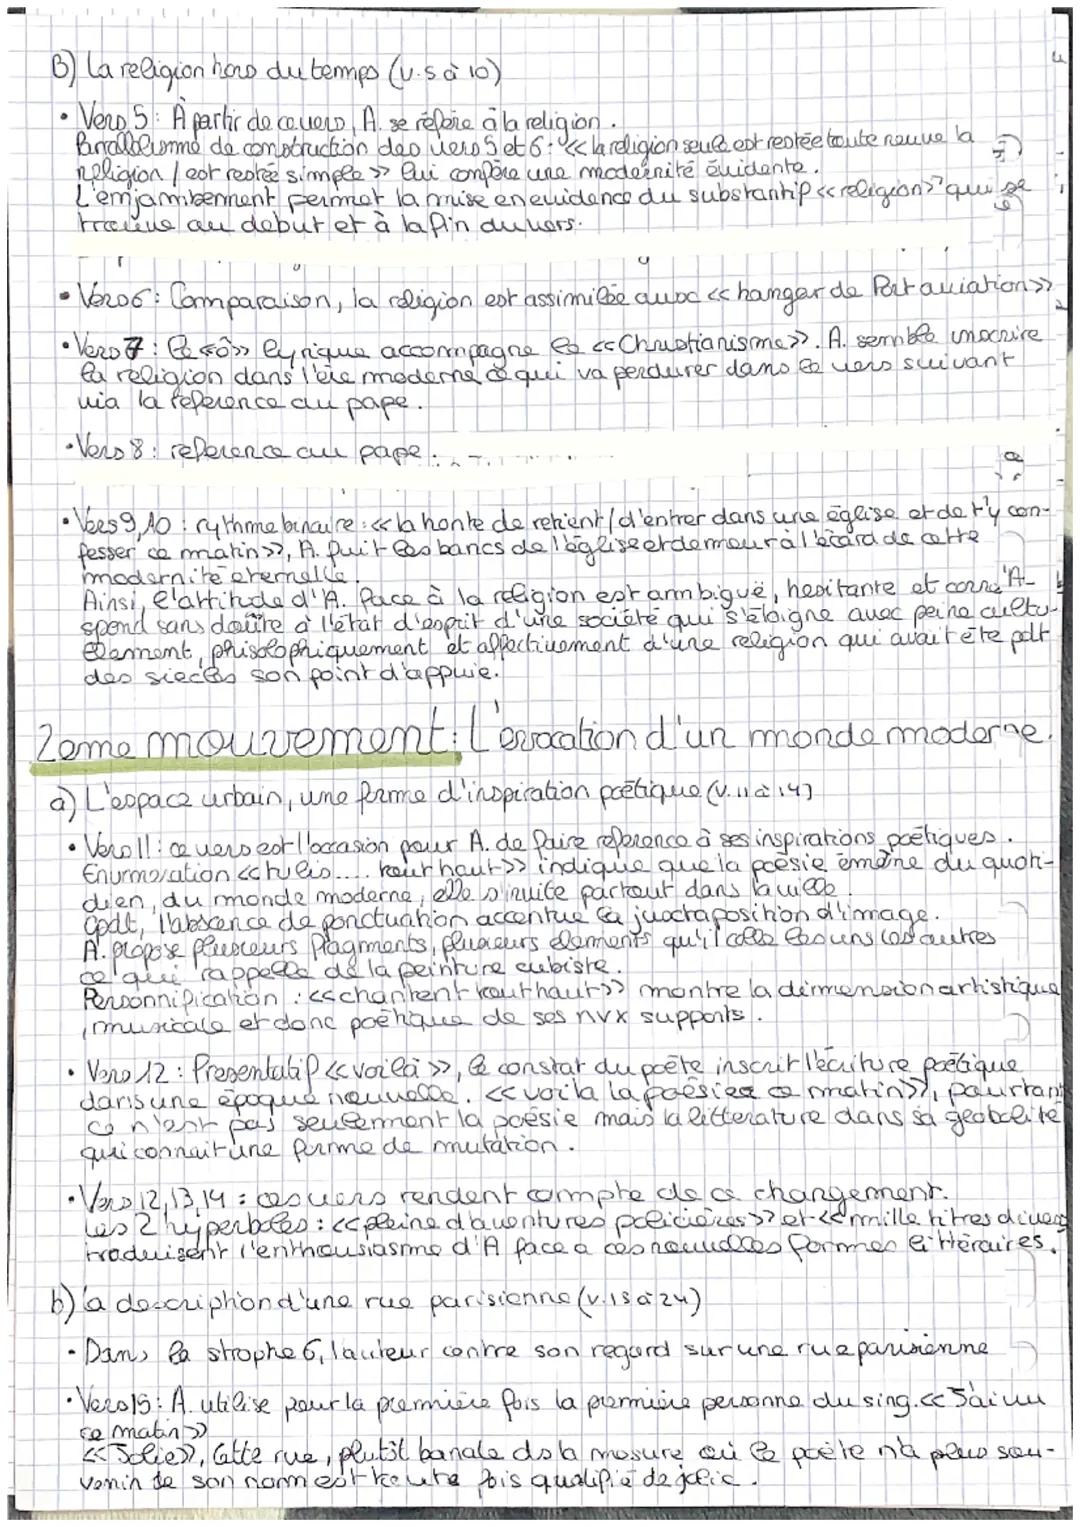 B) La religion hors du temps (v.5 à 10)
• Vers 5: À partir de ce vers, A. se réfère à la religion.
Parallélisme de construction des vers 5 et 6: << la religion seule est restée toute neuve la
religion / est restée simple >> lui confère une modernité évidente.
L'enjambement permet la mise en evidence du substantif << religion >> qui se
trouve au debut et à la fin du vers.
• Vers 6: Comparaison, la religion est assimilée avec << hangar de Port aviation >>
• Vers 7: Le << ô >> lyrique accompagne le << Christianisme >>. A. semble inscrire
la religion dans l'ère moderne ce qui va perdurer dans le vers suivant
via la reference au pape.
• Vers 8: reference au pape.
• Vers 9,10: rythme binaire: << la honte de retient / d'entrer dans une église et de t'y con-
fesser ce matin >>, A. fuit les bancs de l'église et demeur à l'écard de cette
modernité eternelle.
Ainsi, l'attitude d'A. face à la religion est ambiguë, hesitante et corre-
spond sans doute à l'état d'esprit d'une société qui s'éloigne avec peine cultu-
ellement, phisolophiquement et affectivement d'une religion qui avait été pdt
des siecles son point d'appuie.
2eme mouvement: L'evocation d'un monde moderne.
a) L'espace urbain, une forme d'inspiration poëtique (v.11 à 14)
• Vers 11: ce vers est l'occasion pour A. de faire reference à ses inspirations poétiques.
Enumeration << tu lis.... tout haut >> indique que la poésie émane du quoti-
dien, du monde moderne, elle s'invite partout dans la ville.
Cpdt, l'absence de ponctuation accentue la juxtaposition d'image.
A. propose plusieurs fragments, plusieurs elements qu'il colle les uns les autres
ce qui rappelle de la peinture cubiste.
Personnification: << chantent tout haut >> montre la dimension artistique
, musicale et donc poétique de ses nvx supports.
• Vers 12: Presentatif << voilà >>, le constat du poète inscrit l'écriture poétique
dans une époque nouvelle. << voila la poésie ce matin >>, pourtant
ce n'est pas seulement la poésie mais la litterature dans sa globalité
qui connait une forme de mutation.
• Vers 12,13,14: ces vers rendent compte de ce changement.
Les 2 hyperboles: << pleine d'aventures policières >> et << mille titres divers
traduisent l'enthousiasme d'A face a ces nouvelles formes littéraires.
b) la description d'une rue parisienne (v.15 à 24)
• Dans la strophe 6, l'auteur centre son regard sur une rue parisienne
• Vers 15: A. utilise pour la premiere fois la premiere personne du sing. << J'ai vu
ce matin >>
<< Jolie >>, Cette rue, plutôt banale ds la mesure où le poète n'a plus sou-
venir de son nom est toute fois qualifié de jolie.